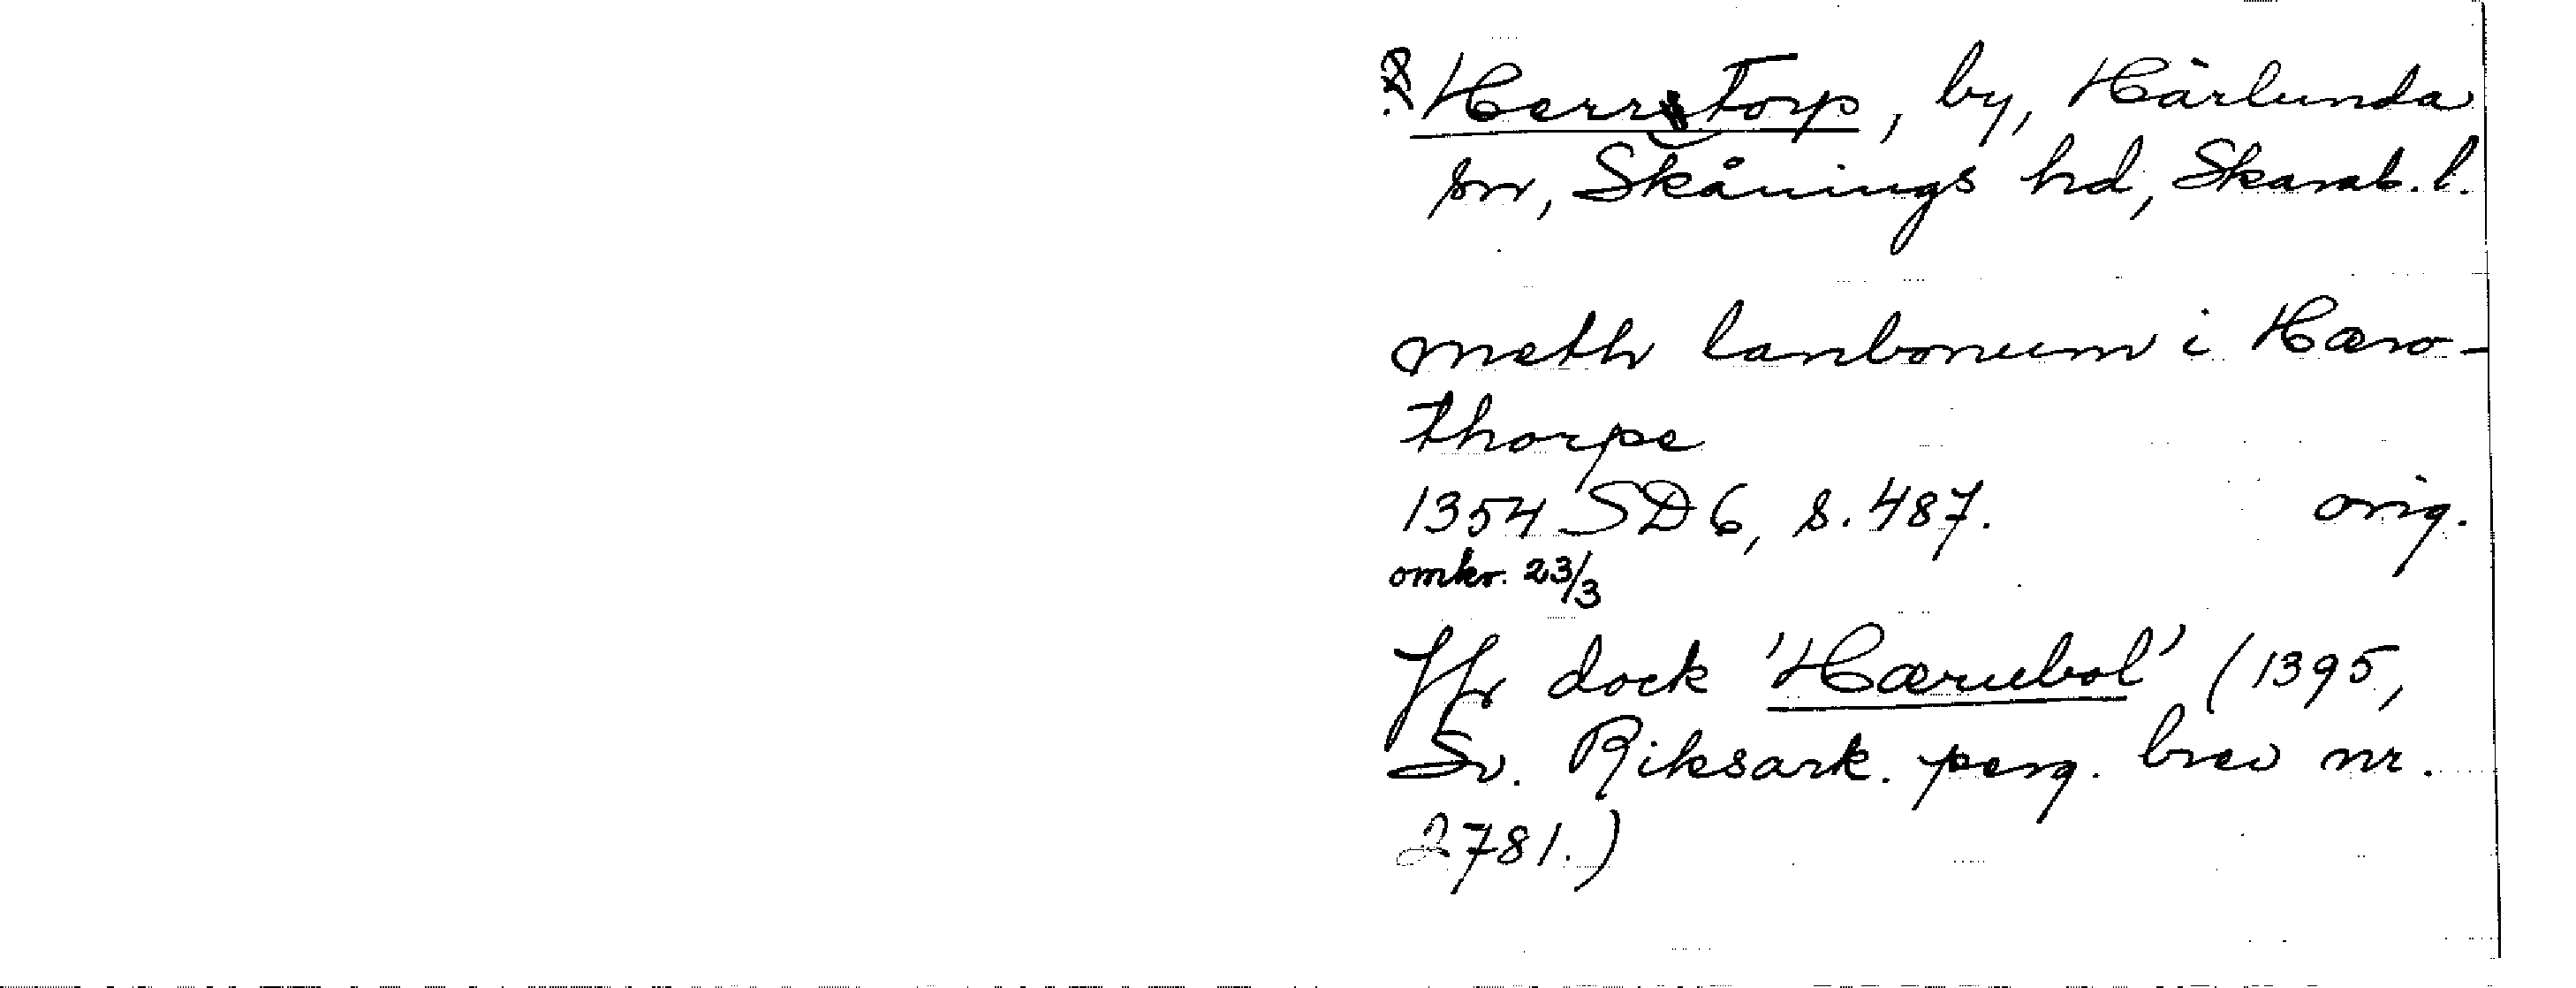 ? Herrtorp, by, Härlunda
sn, Skånings hd, Skarab. l.
meth lanbonum i Hæro-
thorpe
1354 SD 6, s. 487. orig.
omkr. 23/3
Jfr dock 'Hærubol' (1395,
Sv. Riksark. perg. brev nr.
2781.)